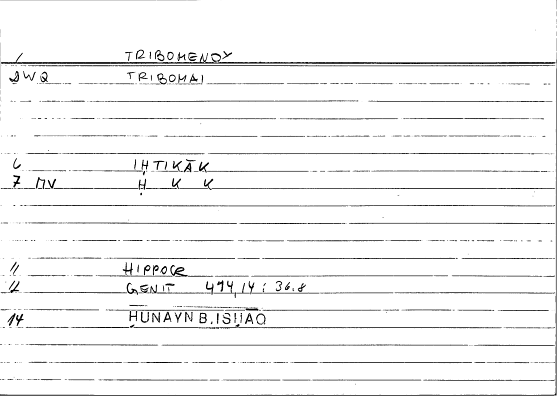 1 TRIBOMENOY
2WQ TRIBOMAI
6 IḤTIKĀK
7 MV Ḥ K K
11 HIPPOCR
12 GENIT 474,14 : 36.8
14 ḤUNAYN B. ISḤĀQ